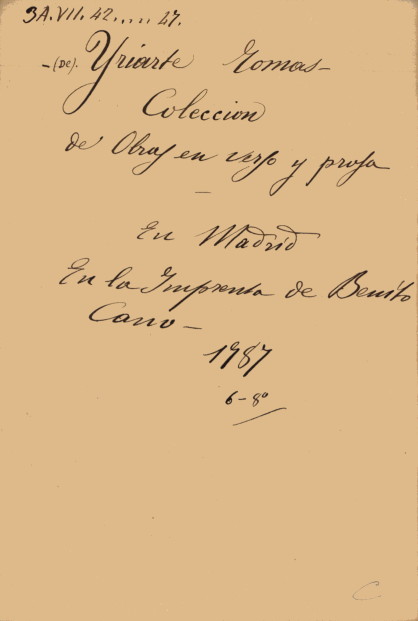 3A.VII.42.....47.
-(DE). Yriarte Tomas-
Coleccion
de Obras en verso y prosa
—
En Madrid
En la Imprenta de Benito
Cano-
1787
6-8º
C